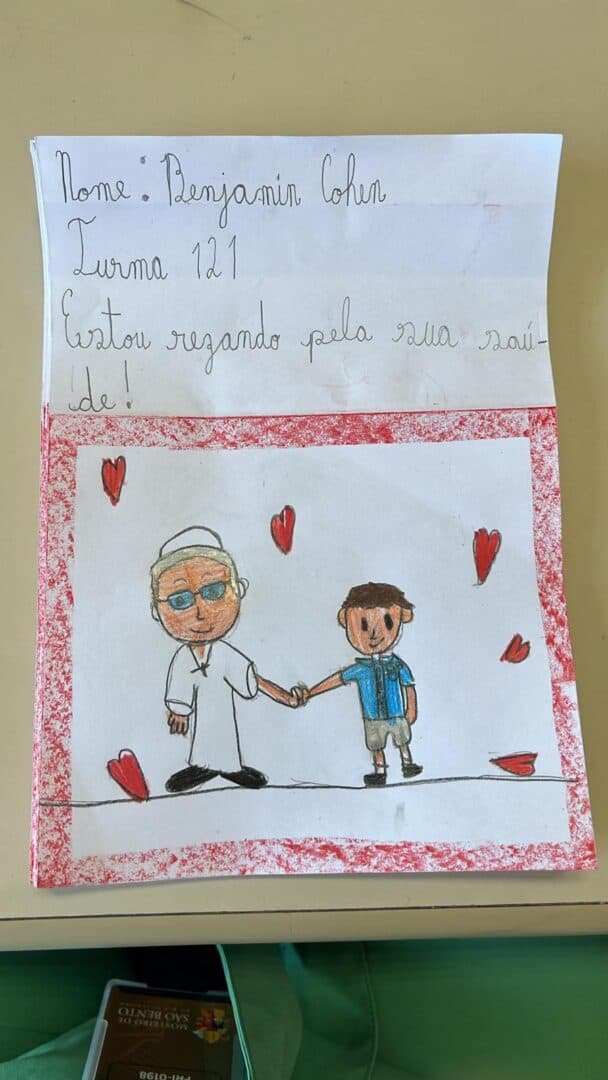 Nome: Benjamin Cohen
Turma 121
Estou rezando pela sua saú-
de!
MOSTEIRO DE
SÃO BENTO
PRI-0198